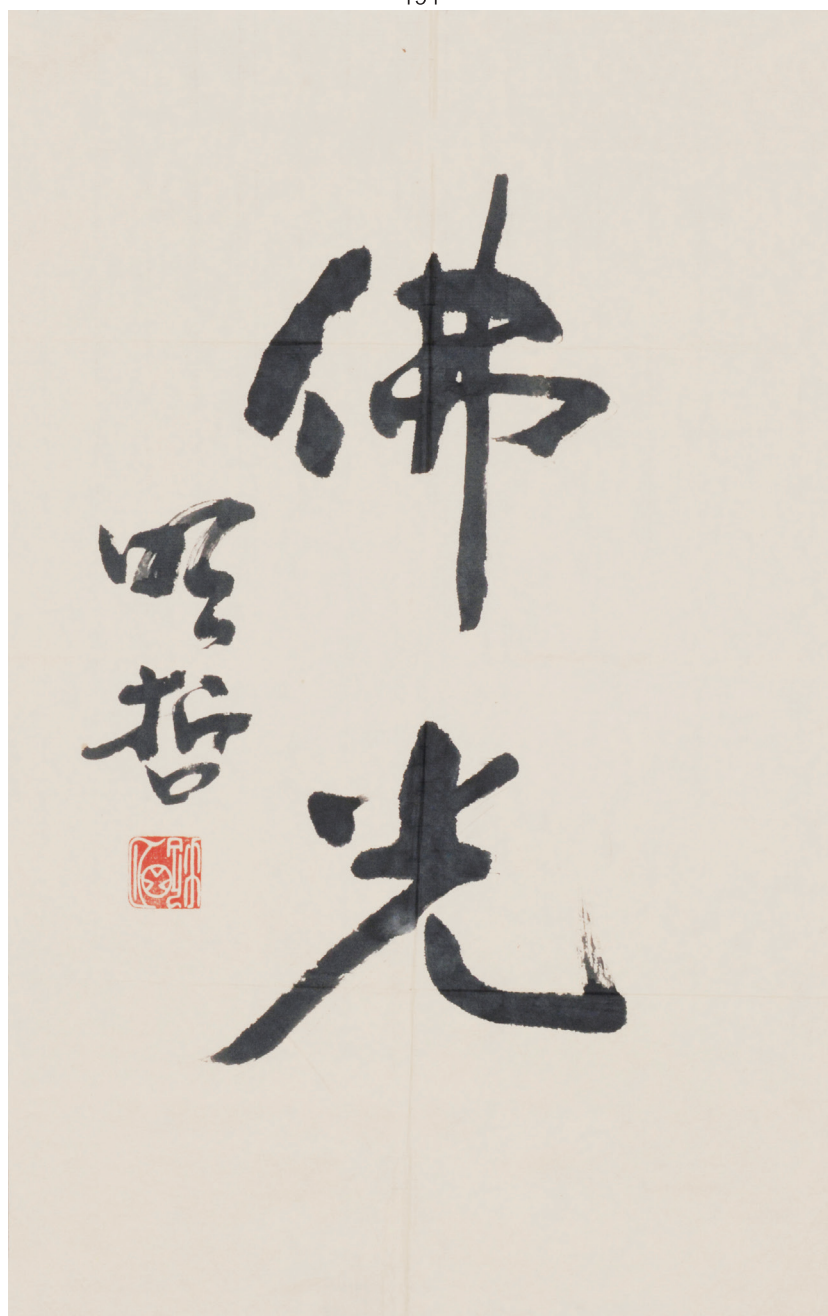 佛光
明哲